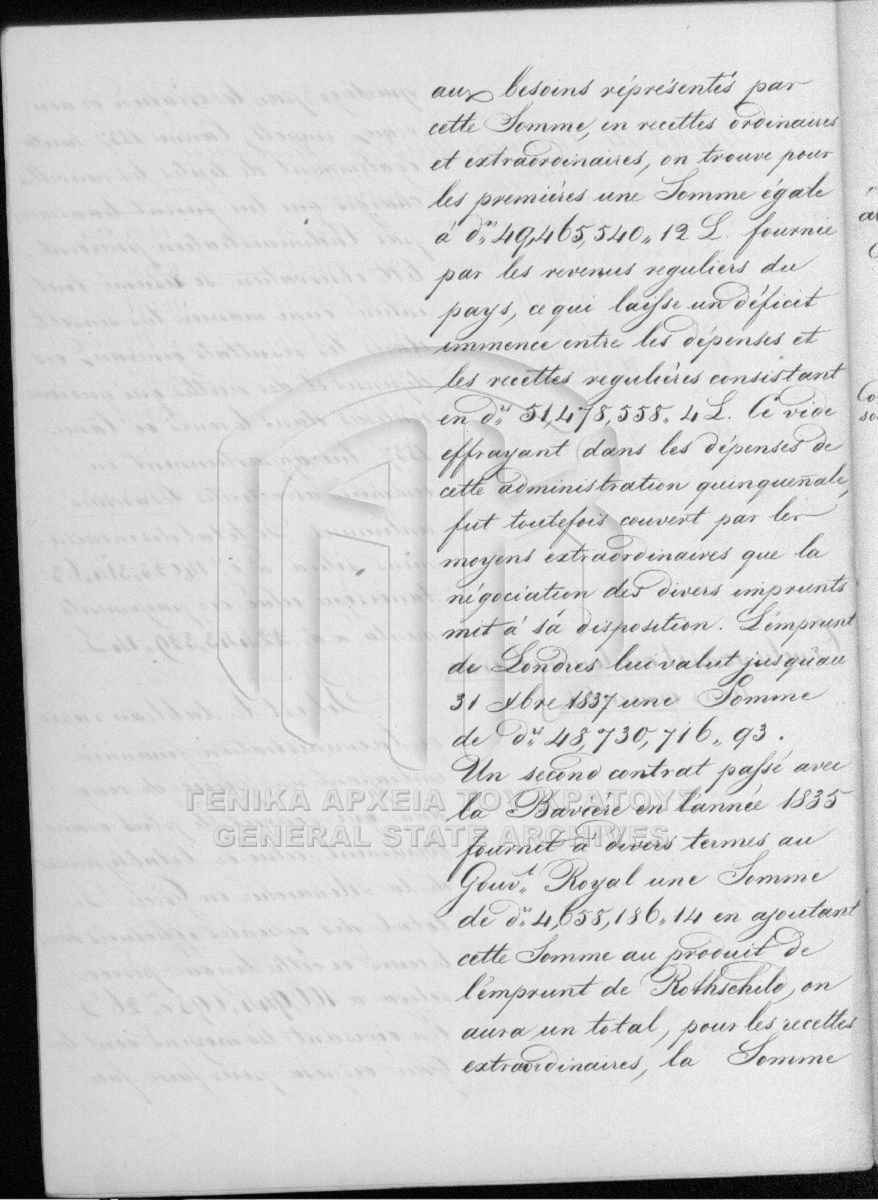 aux besoins répresentés par
cette Somme, en recettes ordinaires
et extraordinaires, on trouve pour
les premiéres une Somme égale
á drs 49,465,540„ 12 L. fournie
par les revenus reguliers du
pays, ce qui laisse un déficit
immence entre les dépenses et
les recettes reguliéres consistant
en drs 51,478,558„ 4 L. Ce vide
effrayant dans les dépenses de
cette administration quinqueñale,
fut toutefois couvert par les
moyens extraordinaires que la
négociation des divers imprunts
mit á sá disposition. L'émprunt
de Londres lui valut jusqu'au
31 Xbre 1837 une Somme
de drs 48,730,716„ 93.
Un second contrat passé avec
la Baviére en l'année 1835
ΓΕΝΙΚΑ ΑΡΧΕΙΑ ΤΟΥ ΚΡΑΤΟΥΣ
GENERAL STATE ARCHIVES
fournit á divers termes au
Gouvt Royal une Somme
de drs 4,658,186„ 14 en ajoutant
cette Somme au produit de
l'émprunt de Rothschild, on
aura un total, pour les recettes
extraordinaires, la Somme